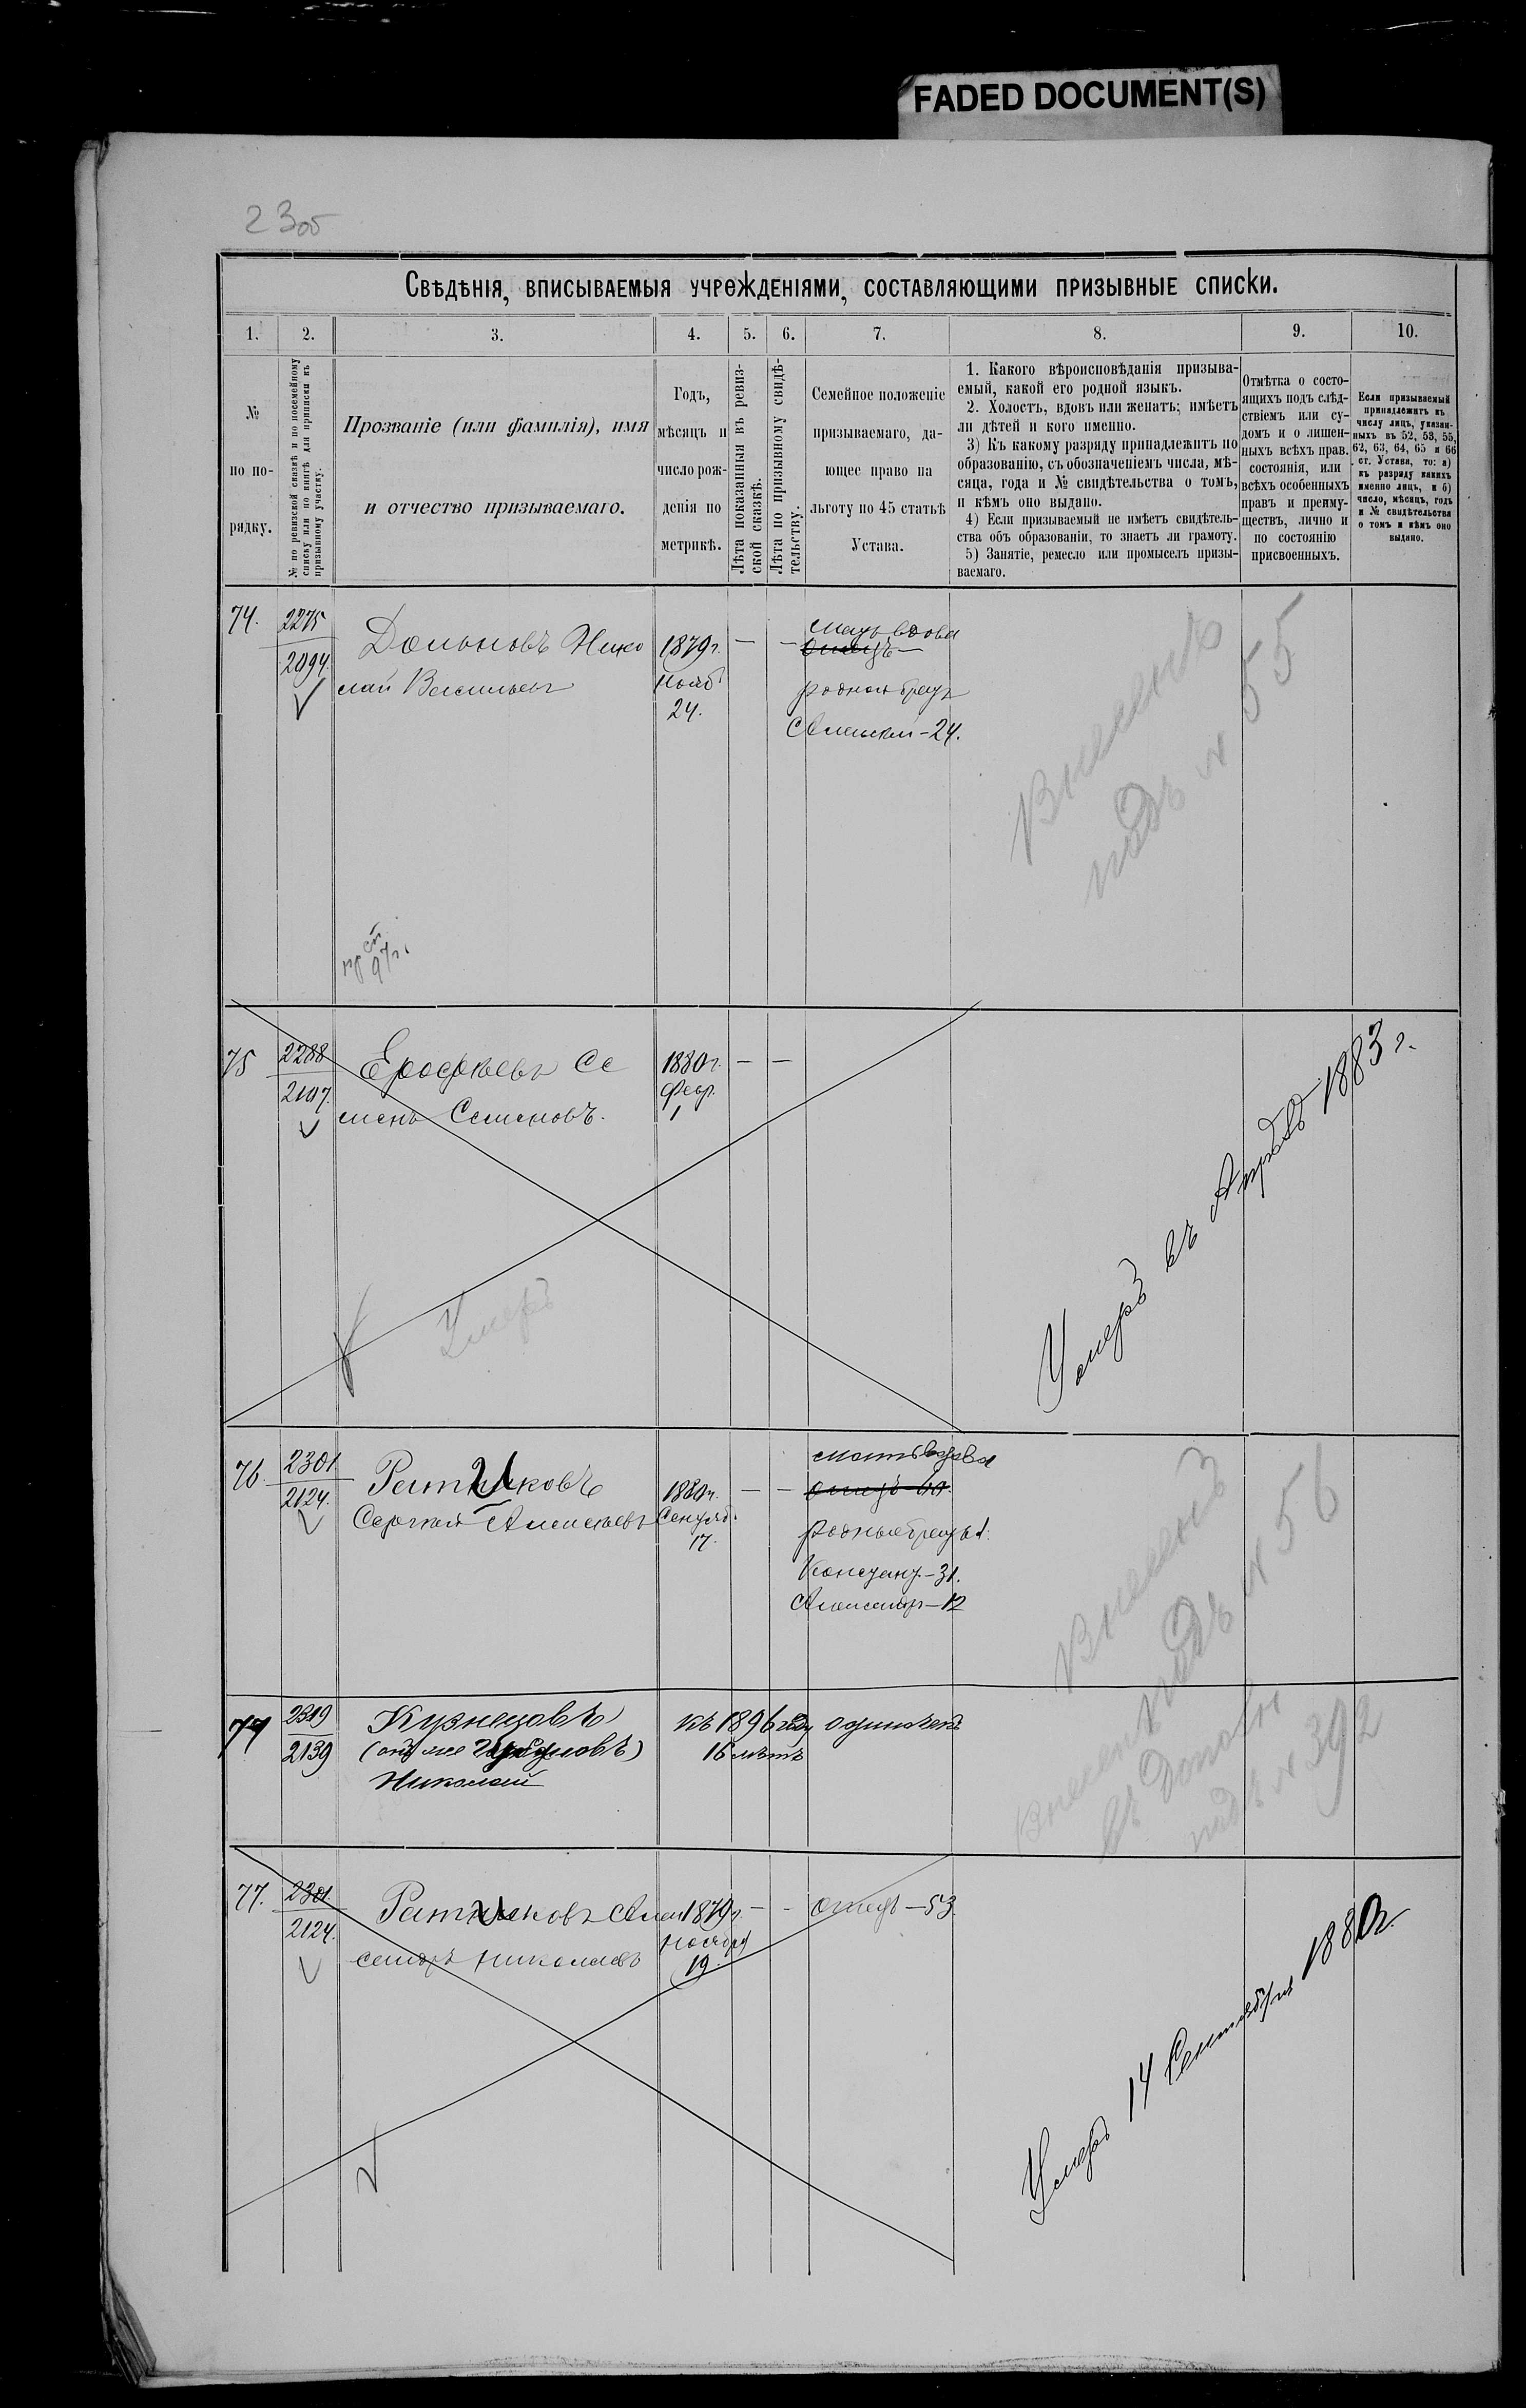 FADED DOCUMENT(S)
23об
Свѣдѣнія, вписываемыя учрежденіями, составляющими призывные списки.
1. 2. 3. 4. 5. 6. 7. 8. 9. 10.
№ по порядку.
№ по ревизской сказкѣ и по посемейному
списку или по книгѣ для приписки къ
призывному участку.
Прозваніе (или фамилія), имя
и отчество призываемаго.
Годъ,
мѣсяцъ и
число рож-
денія по
метрикѣ.
Лѣта показанныя въ ревиз-
ской сказкѣ.
Лѣта по призывному свидѣ-
тельству.
Семейное положеніе
призываемаго, да-
ющее право на
льготу по 45 статьѣ
Устава.
1. Какого вѣроисповѣданія призыва-
емый, какой его родной языкъ.
2. Холостъ, вдовъ или женатъ; имѣетъ
ли дѣтей и кого именно.
3) Къ какому разряду принадлежитъ по
образованію, съ обозначеніемъ числа, мѣ-
сяца, года и № свидѣтельства о томъ,
и кѣмъ оно выдано.
4) Если призываемый не имѣетъ свидѣтель-
ства объ образованіи, то знаетъ ли грамоту.
5) Занятіе, ремесло или промыселъ призы-
ваемаго.
Отмѣтка о состо-
ящихъ подъ слѣд-
ствіемъ или су-
домъ и о лишен-
ныхъ всѣхъ прав.
состоянія, или
всѣхъ особенныхъ
правъ и преиму-
ществъ, лично и
по состоянію
присвоенныхъ.
Если призываемый
принадлежитъ къ
числу лицъ, указан-
ныхъ въ 52, 53, 55,
62, 63, 64, 65 и 66
ст. Устава, то: а)
къ разряду какихъ
именно лицъ, и б)
число, мѣсяцъ, годъ
и № свидѣтельства
о томъ и кѣмъ оно
выдано.
74. 2275
2094.
Нико
лай Васильевъ
1879г.
Нояб
24.
— —
мать вдова
отецъ —
родной братъ
Алексѣй - 24.
Внесенъ
подъ № 55
97г.
75 2288
2107.
Ерофѣевъ Се
менъ Семеновъ.
1880г.
Февр.
1
— —
Умеръ
Умеръ въ 1883 г.
76. 2301
2124.
Ратниковъ
Сергѣй Алексѣевъ
1880г.
Сентяб.
17.
— —
мать вдова
отецъ 60.
родные братья:
Констант. - 31.
Александръ - 12
Внесенъ
подъ № 56
77 2319
2139
Кузнецовъ
(онъ же
Николай
къ 1896 году
16 лѣтъ
одинокъ
Внесенъ
въ дополн
подъ № 392
77. 2301.
2124.
Ратниковъ Алек
сандръ Николаевъ
1879г.
Ноября
19.
— —
отецъ - 53
Умеръ 14 Сентября 1880г.